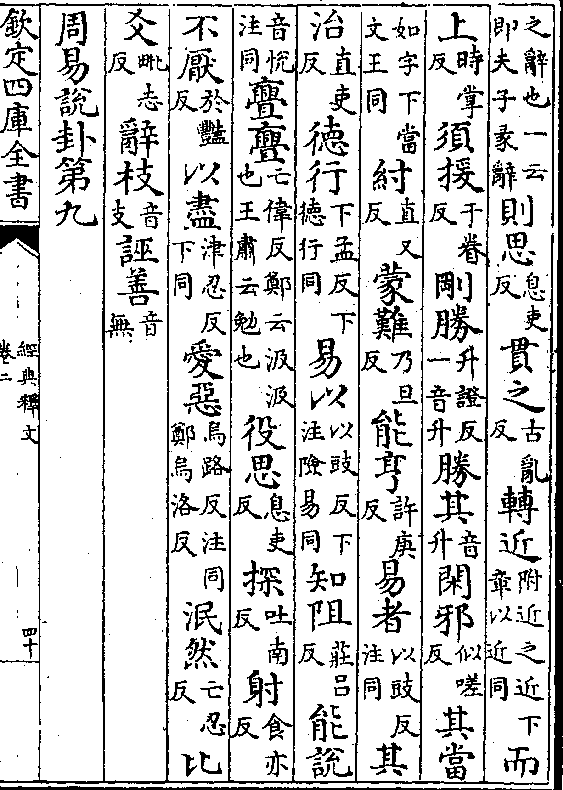 之辭也一云即夫子彖辭則思息吏反貫之古亂反轉近附近之近下章以近同而
上時掌反須援于眷反剛勝升證反一音升勝其音升閑邪似嗟反其當
如字下當文王同紂直又反蒙難乃旦反能亨許庚反易者以豉反注同其
治直吏反德行下孟反下德行同易以以豉反下注險易同知阻莊吕反能說
音悅注同亹亹亡偉反鄭云汲汲也王肅云勉也役思息吏反探吐南反射食亦反
不厭於豔反以盡津忍反下同愛惡烏路反注同鄭烏洛反泯然亡忍反比
爻毗志反辭枝音支誣善音無
周易說卦第九
欽定四庫全書
經典釋文
卷二
四十